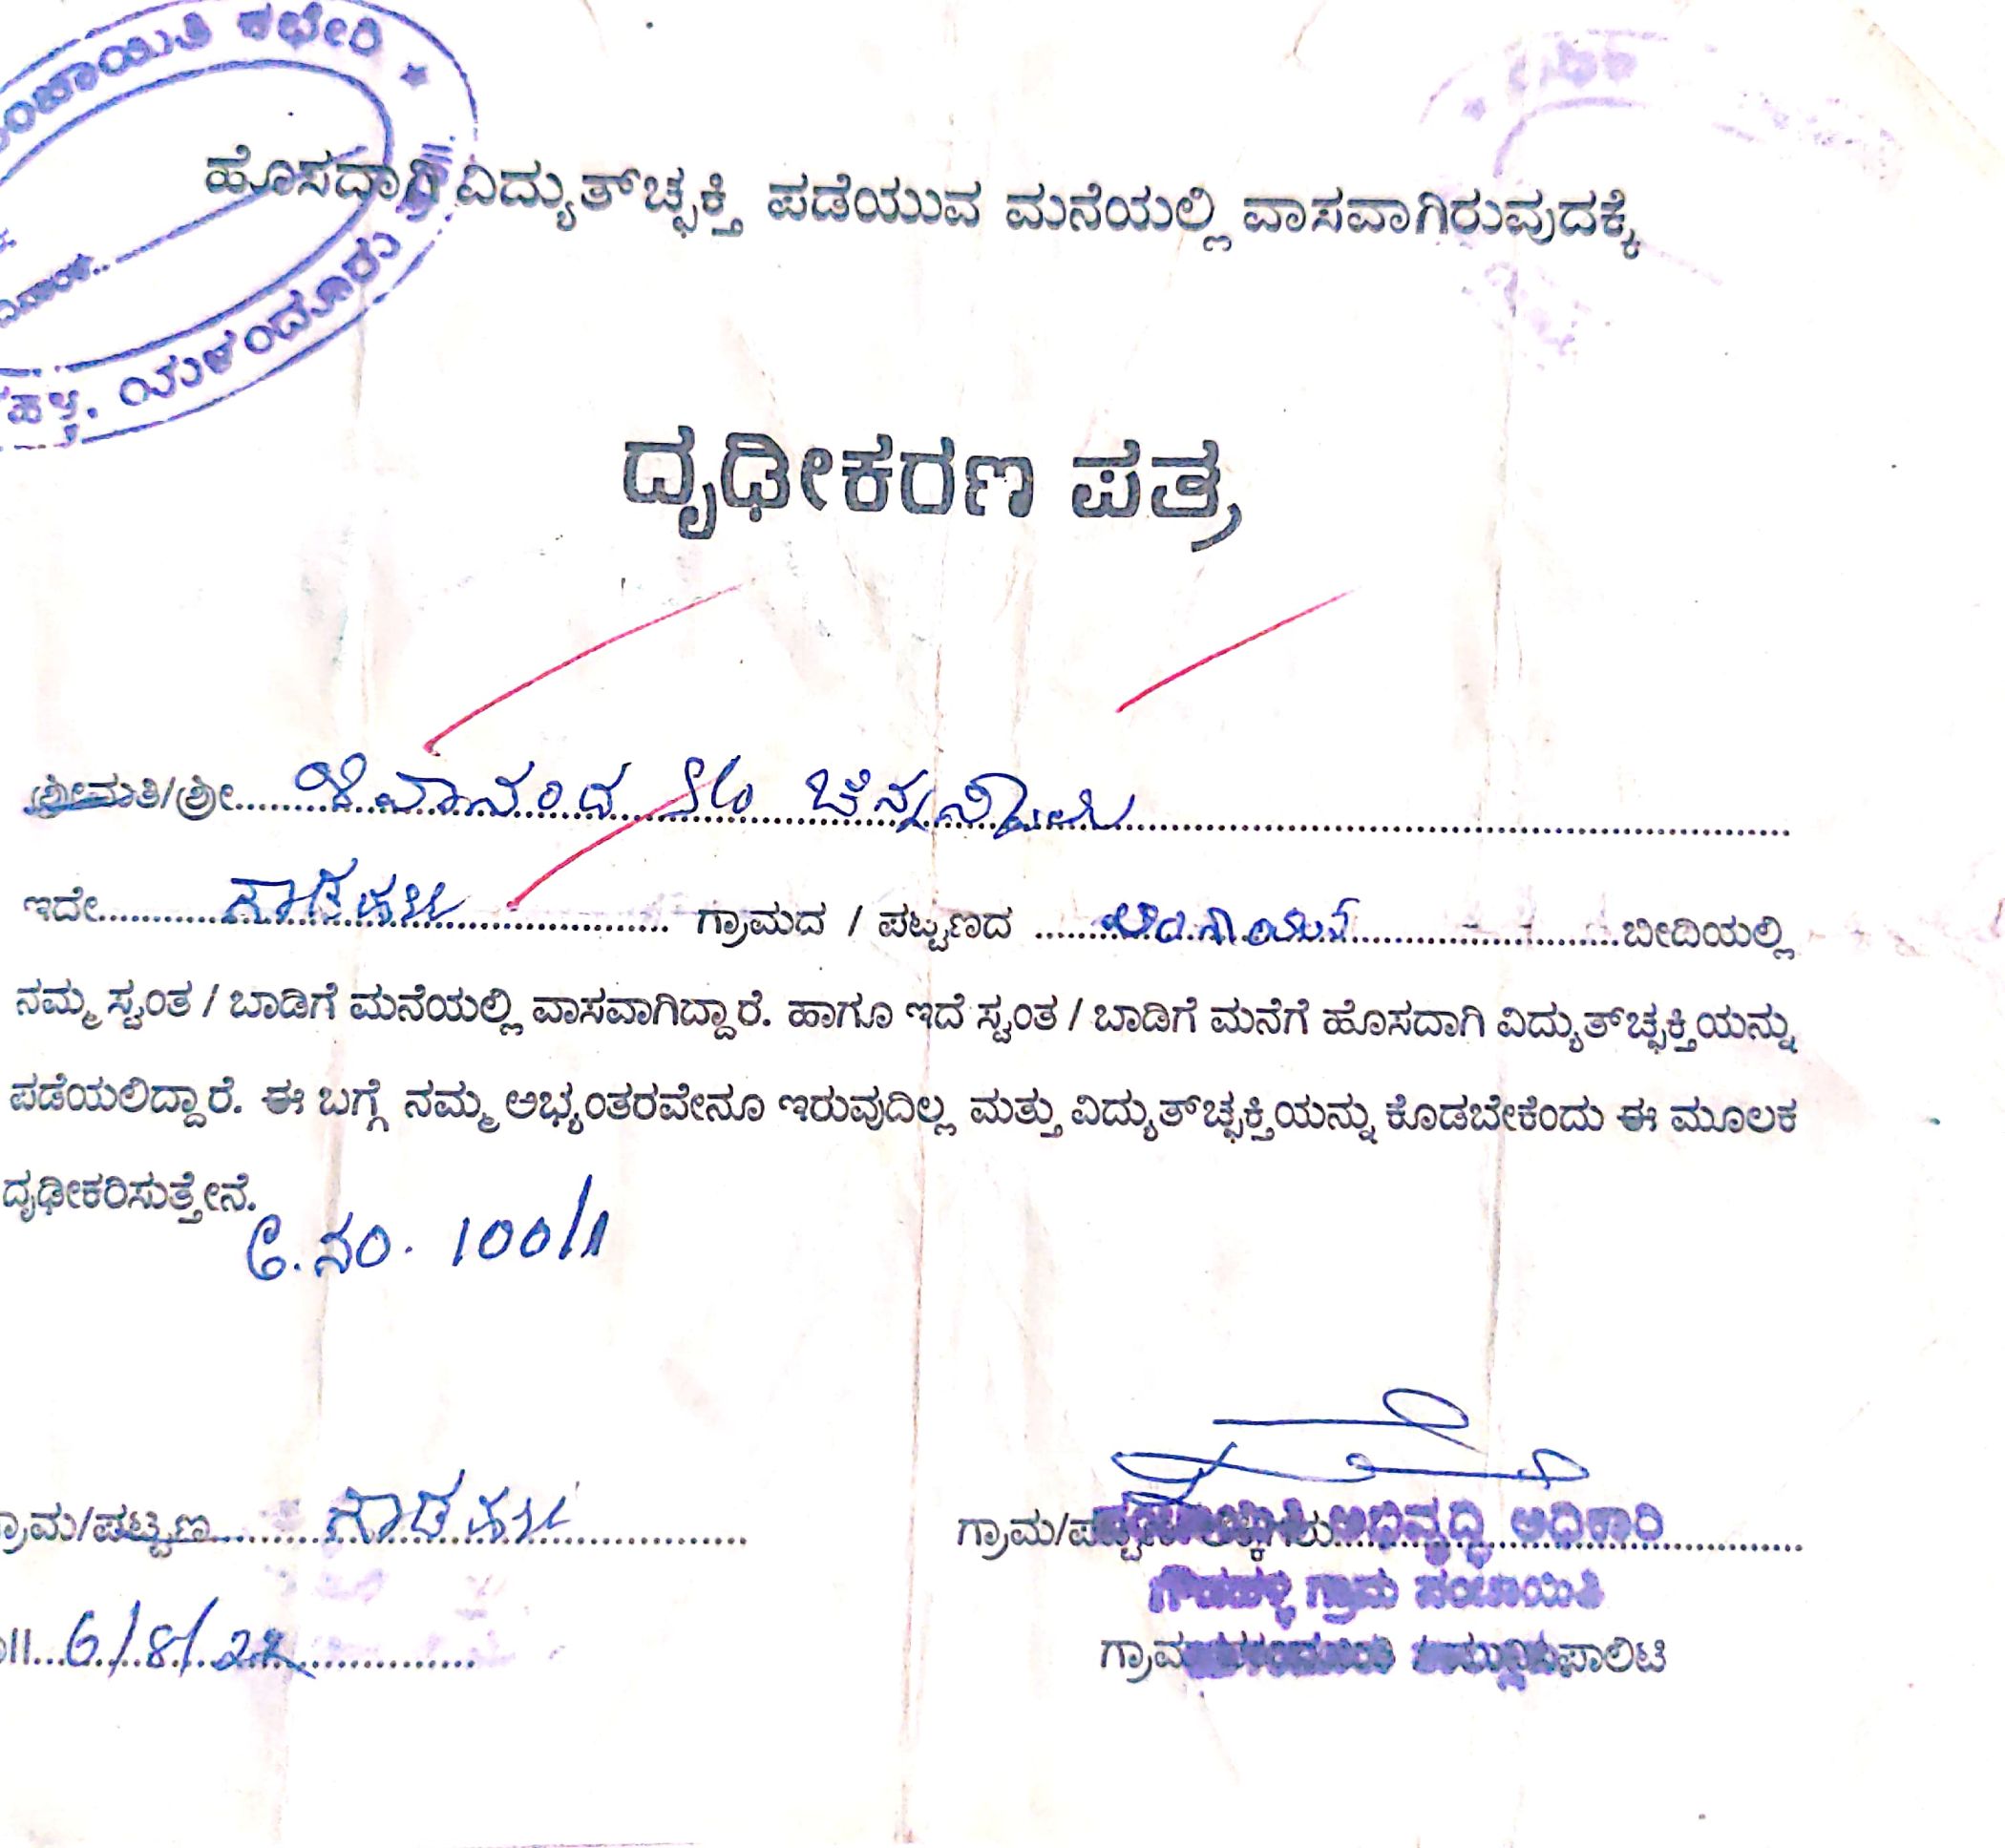 ಪಂಚಾಯಿತಿ ಕಛೇರಿ
ಯಳಂದೂರು
ಹೊಸದಾಗಿ ವಿದ್ಯುತ್‌ಚ್ಛಕ್ತಿ ಪಡೆಯುವ ಮನೆಯಲ್ಲಿ ವಾಸವಾಗಿರುವುದಕ್ಕೆ
ದೃಢೀಕರಣ ಪತ್ರ
ಶ್ರೀಮತಿ/ಶ್ರೀ
ಇದೇ ಗೌಡಹಳ್ಳಿ ಗ್ರಾಮದ / ಪಟ್ಟಣದ ಬೀದಿಯಲ್ಲಿ
ನಮ್ಮ ಸ್ವಂತ / ಬಾಡಿಗೆ ಮನೆಯಲ್ಲಿ ವಾಸವಾಗಿದ್ದಾರೆ. ಹಾಗೂ ಇದೆ ಸ್ವಂತ / ಬಾಡಿಗೆ ಮನೆಗೆ ಹೊಸದಾಗಿ ವಿದ್ಯುತ್‌ಚ್ಛಕ್ತಿಯನ್ನು
ಪಡೆಯಲಿದ್ದಾರೆ. ಈ ಬಗ್ಗೆ ನಮ್ಮ ಅಭ್ಯಂತರವೇನೂ ಇರುವುದಿಲ್ಲ ಮತ್ತು ವಿದ್ಯುತ್‌ಚ್ಛಕ್ತಿಯನ್ನು ಕೊಡಬೇಕೆಂದು ಈ ಮೂಲಕ
ದೃಢೀಕರಿಸುತ್ತೇನೆ.
ನಂ. 100/1
ಗ್ರಾಮ/ಪಟ್ಟಣ ಗೌಡಹಳ್ಳಿ
ಗ್ರಾಮ/ಪಟ್ಟಣ
ಅಭಿವೃದ್ಧಿ ಅಧಿಕಾರಿ
ಗೌಡಹಳ್ಳಿ ಗ್ರಾಮ ಪಂಚಾಯಿತಿ
6/8/22